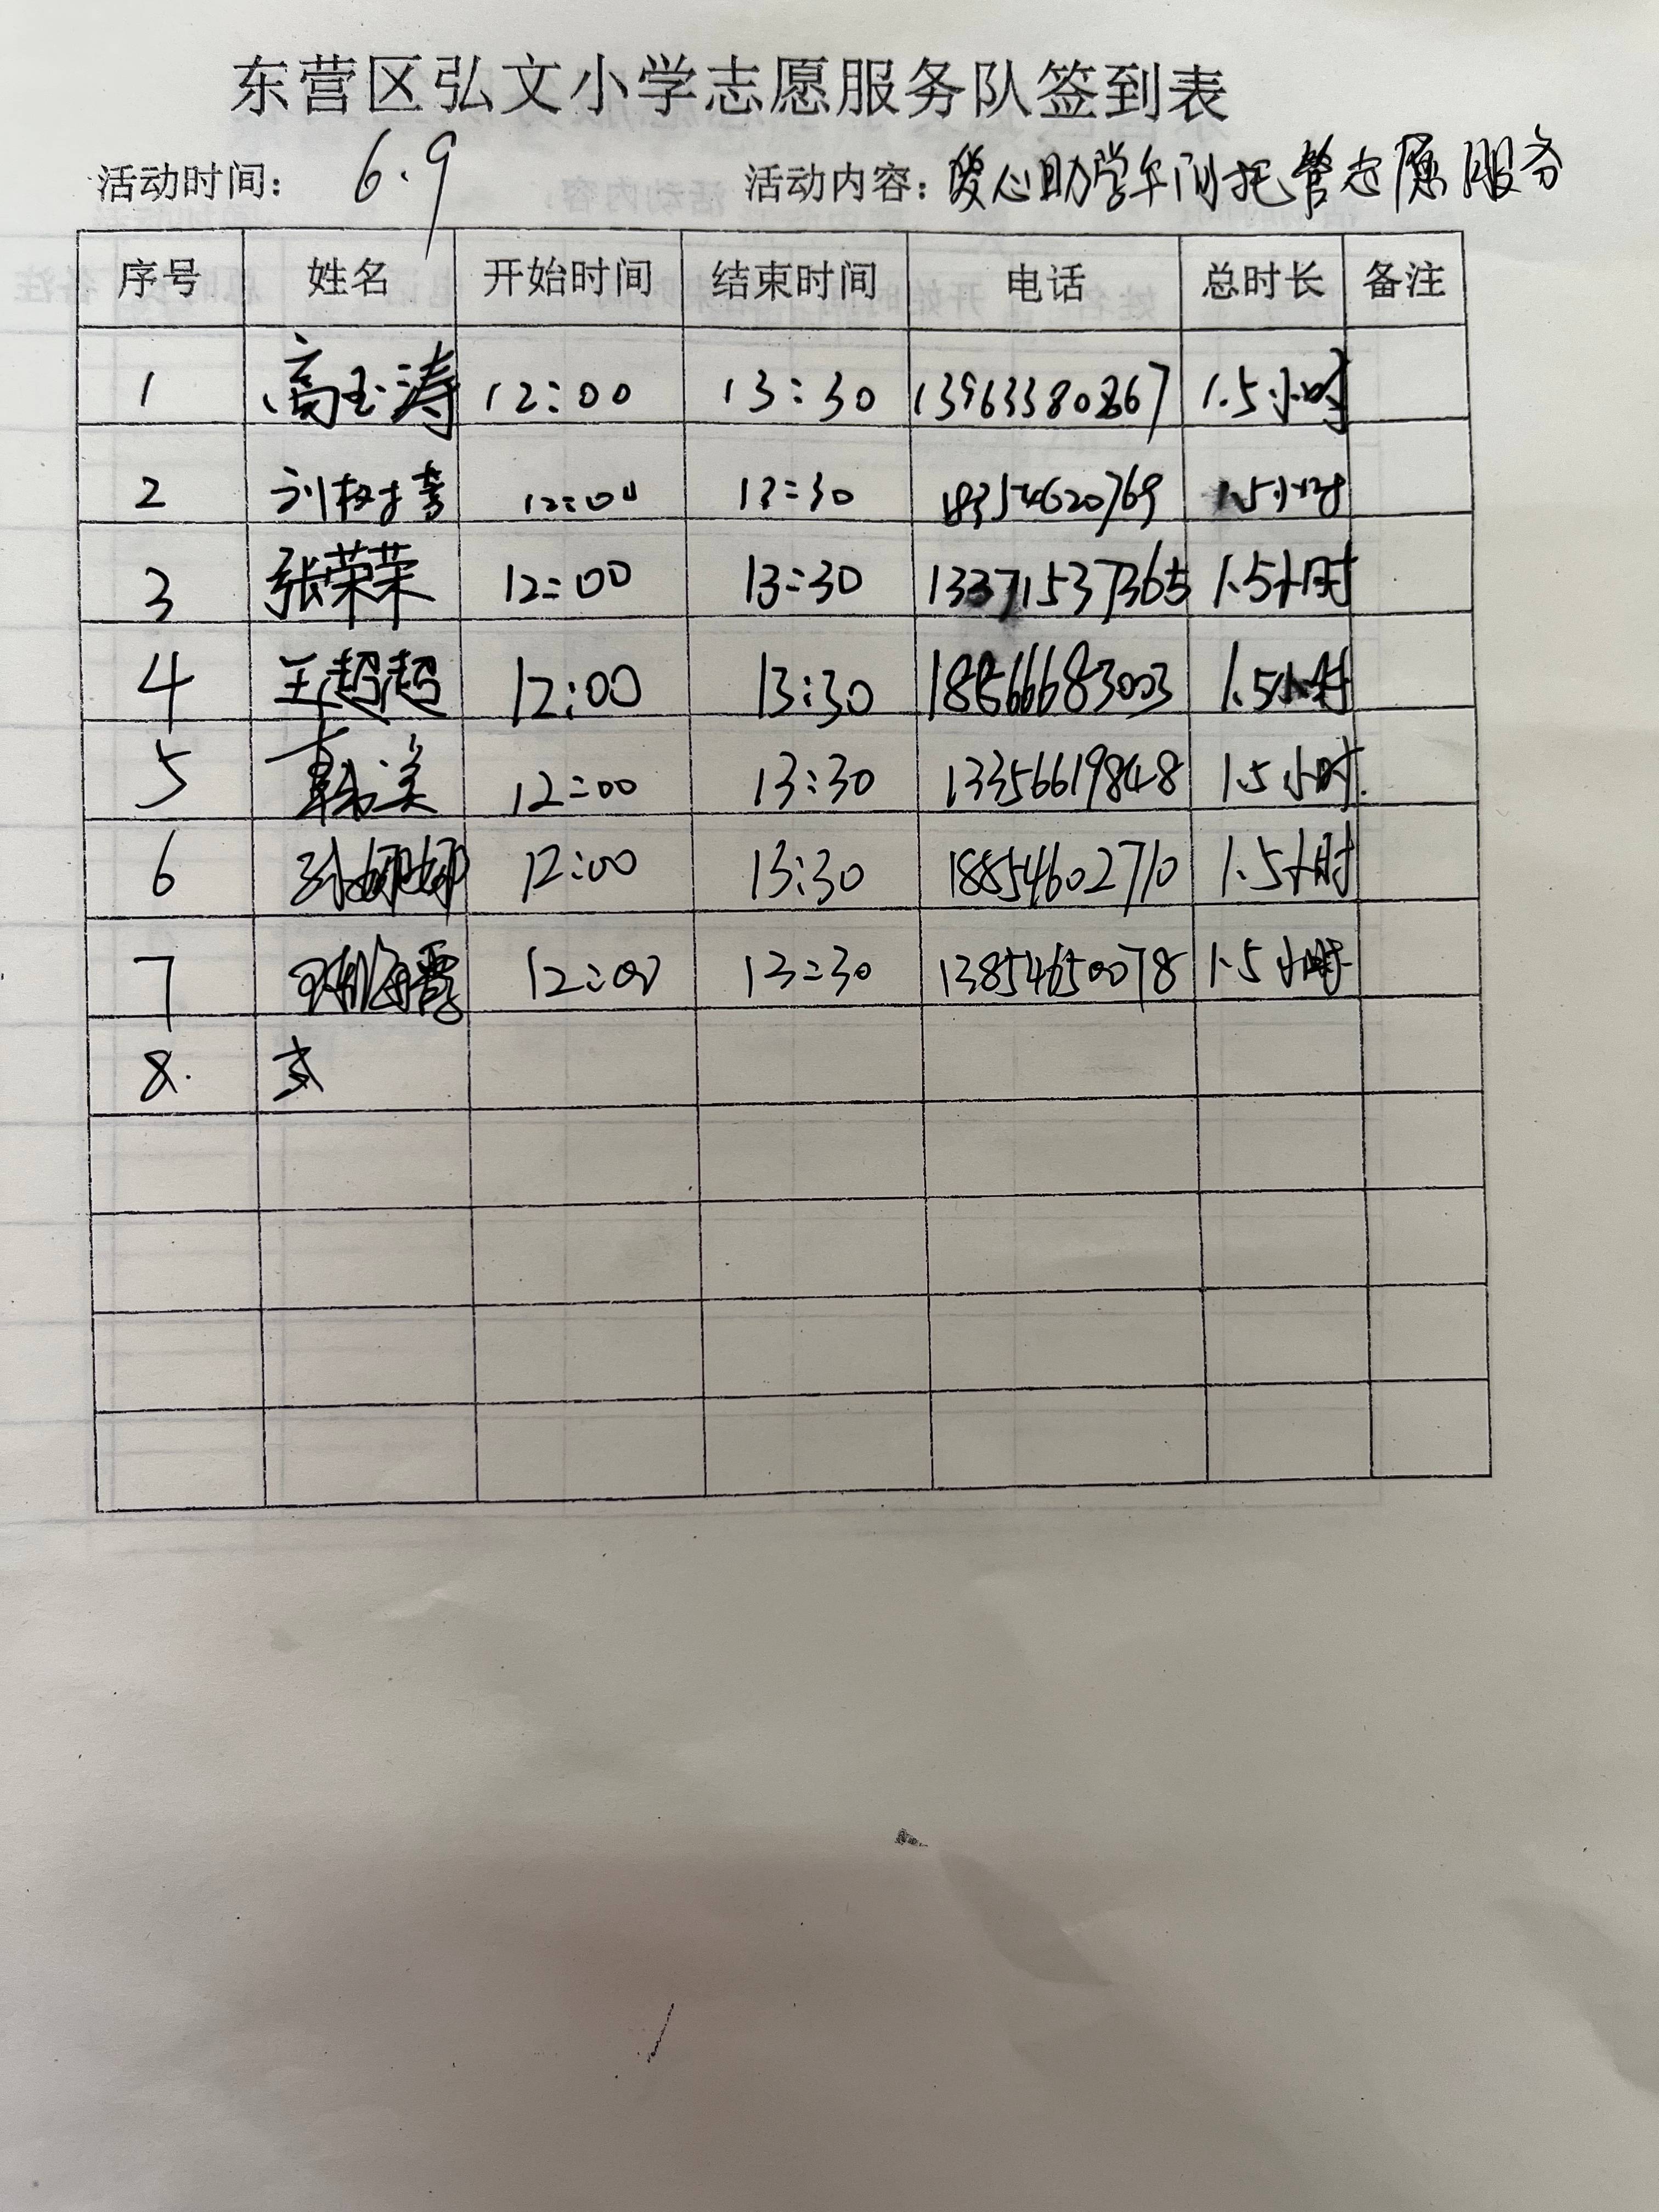 东营区弘文小学志愿服务队签到表
活动时间： 6.9 活动内容：爱心助学午间托管志愿服务
序号 姓名 开始时间 结束时间 电话 总时长 备注
1 高玉涛 12:00 13:30 13963380867 1.5小时
2 刘树青 12:00 13:30 18354620769 1.5小时
3 张荣荣 12:00 13:30 13371537365 1.5小时
4 王超超 12:00 13:30 18866683003 1.5小时
5 韩美 12:00 13:30 13356619848 1.5小时
6 孙娜娜 12:00 13:30 18854602710 1.5小时
7 12:00 13:30 13854650078 1.5小时
8.